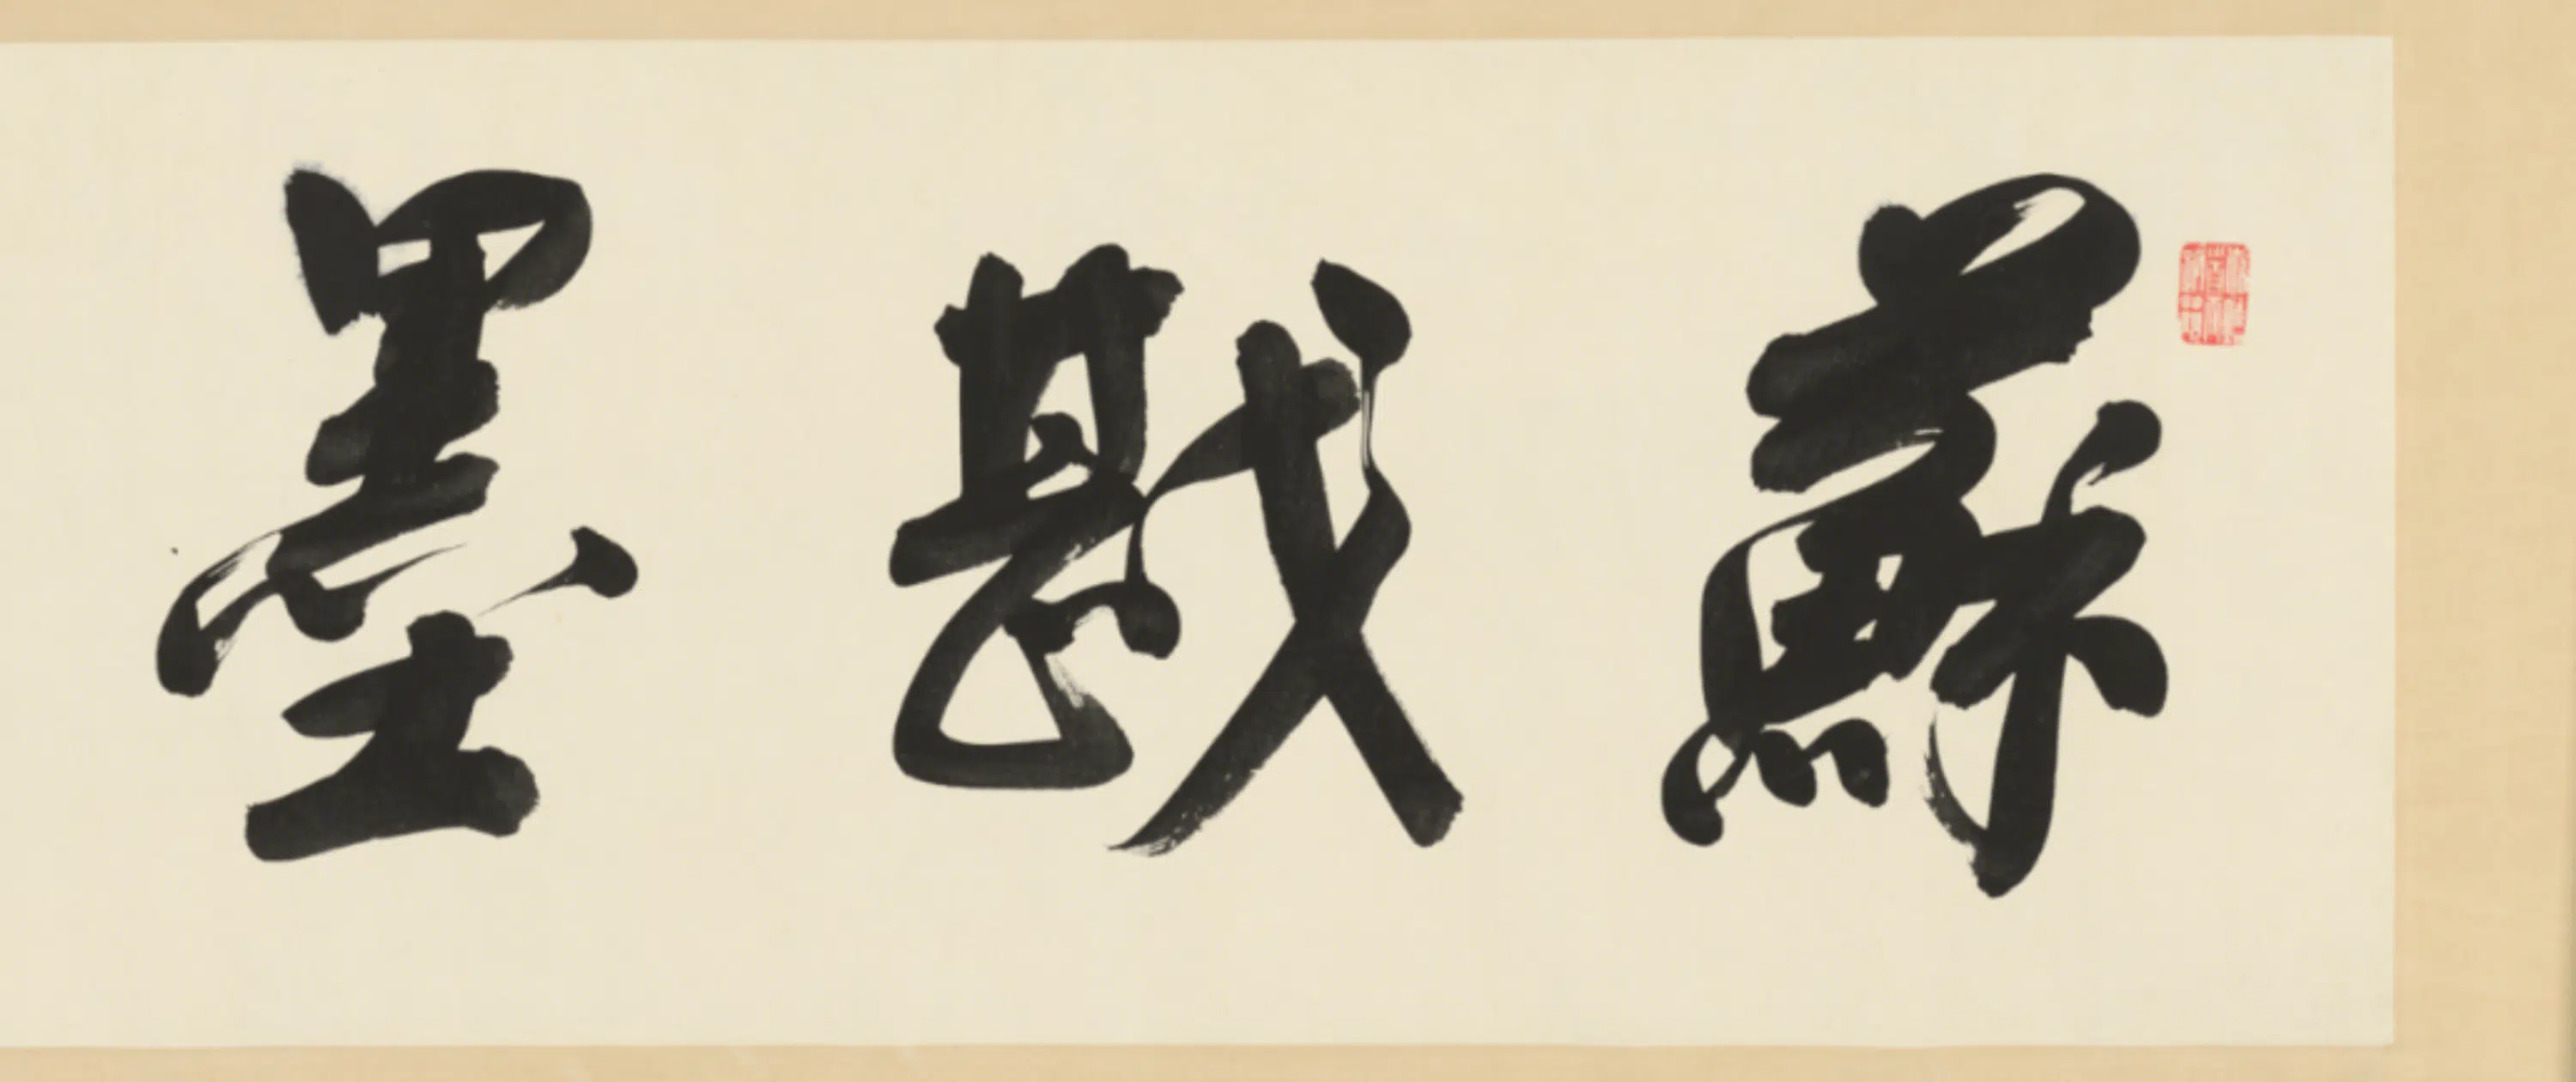 蘇戡墨